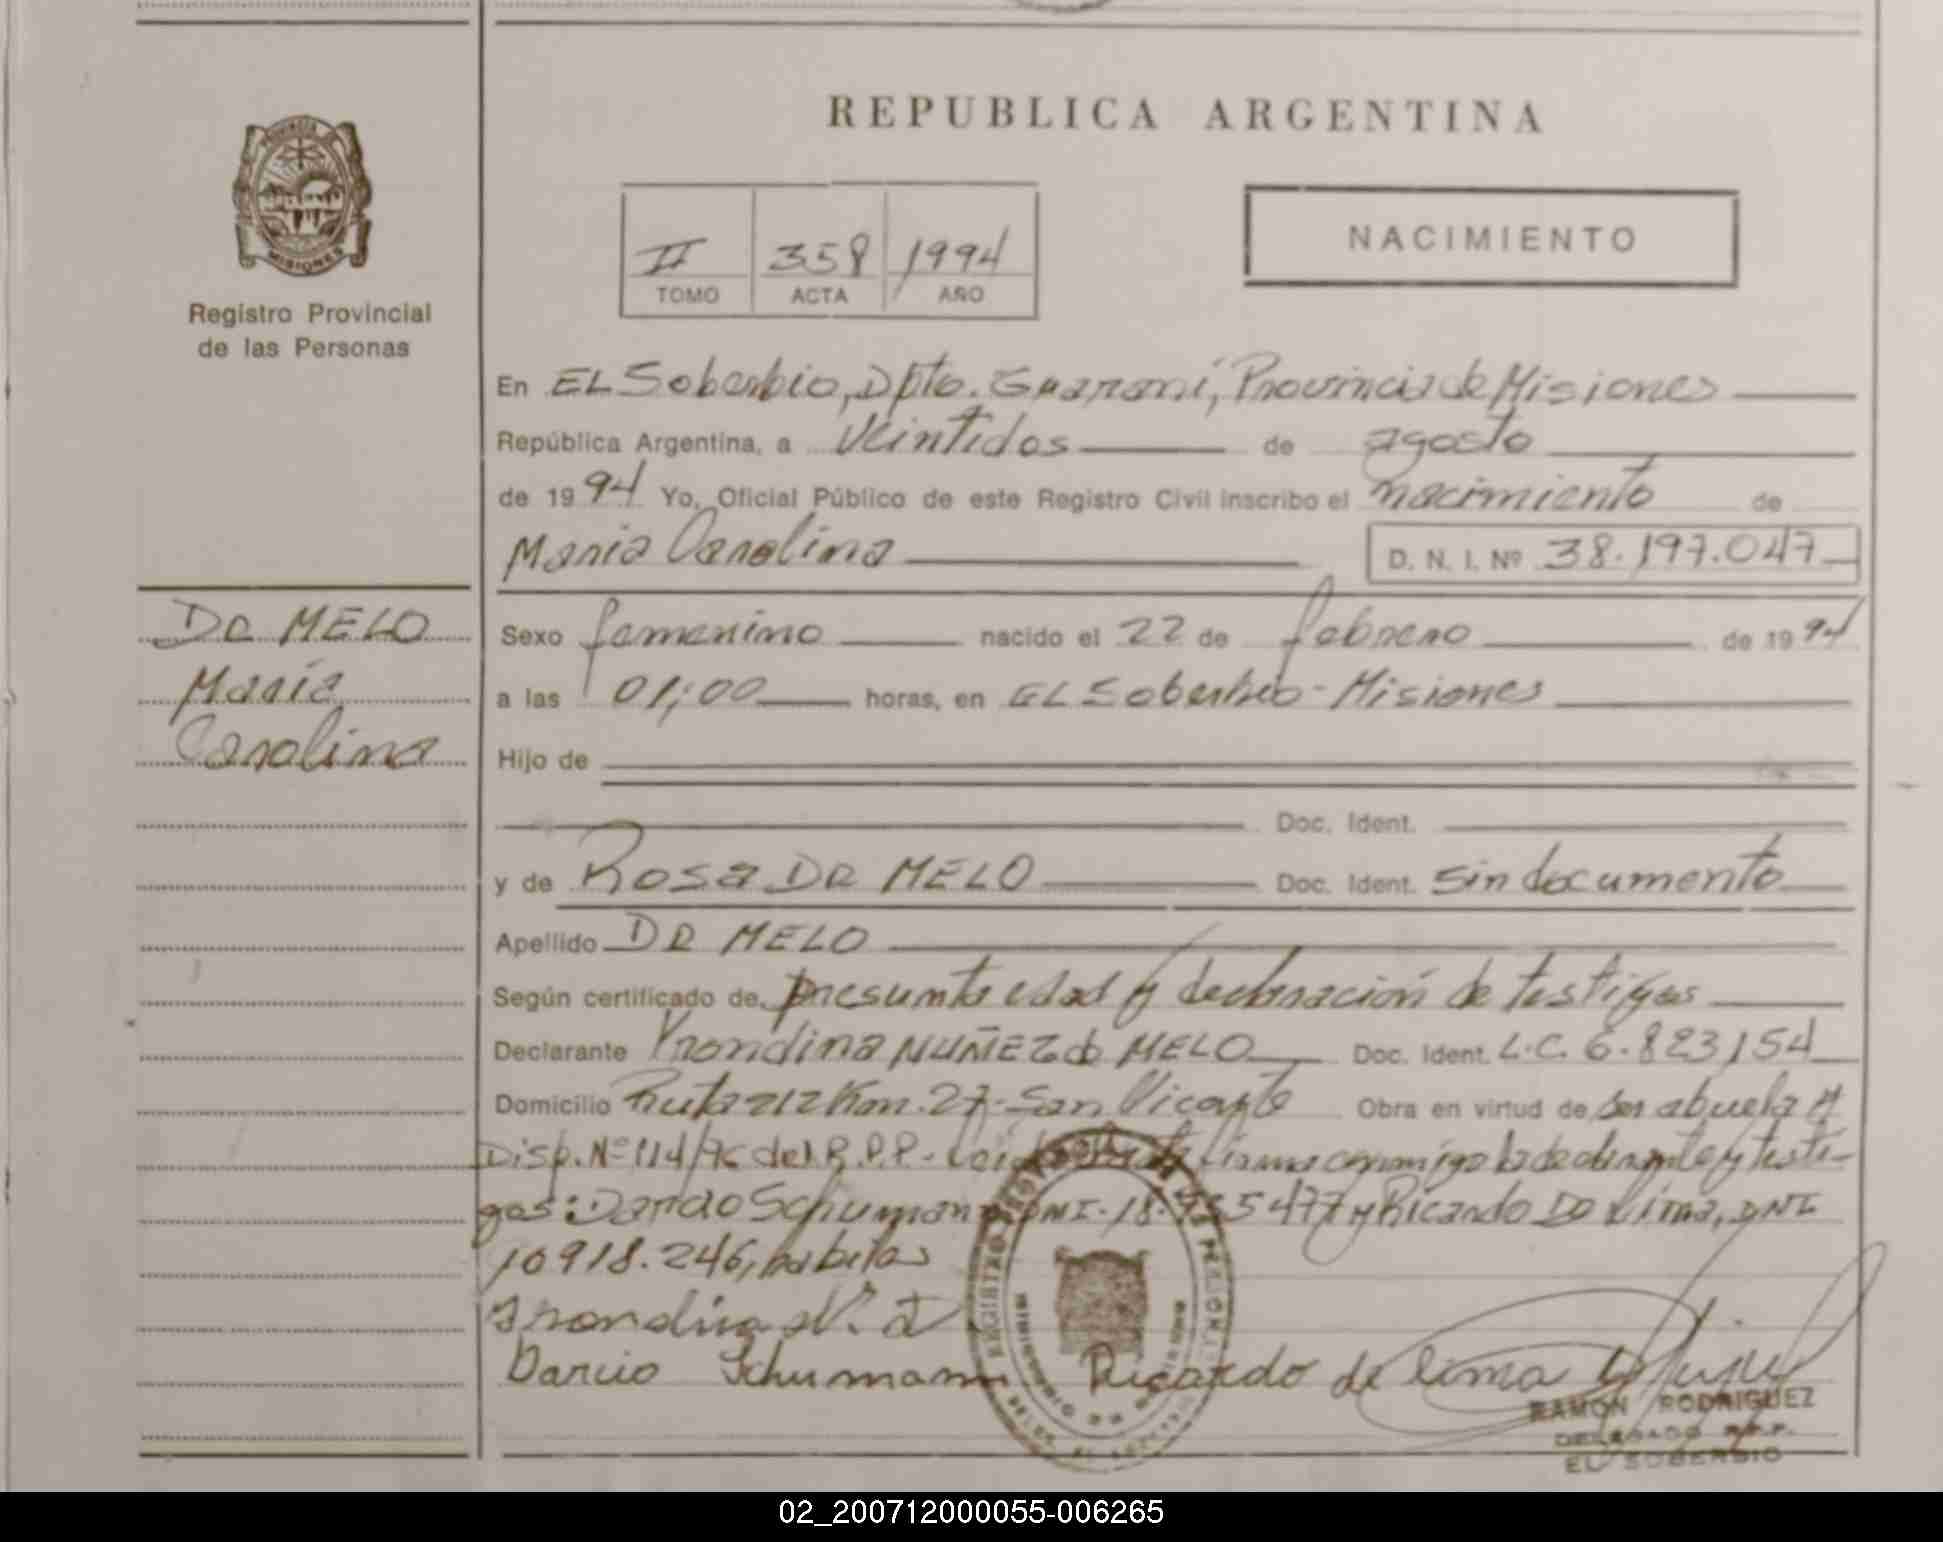 REPUBLICA ARGENTINA
PROVINCIA
MISIONES
Registro Provincial
de las Personas
II 358 1994
TOMO ACTA AÑO
NACIMIENTO
En EL Soberbio, Dpto. Guaraní, Provincia de Misiones
República Argentina, a Veintidos de agosto
de 1994 Yo, Oficial Público de este Registro Civil inscribo el nacimiento de
Maria Carolina D. N. I. Nº 38.197.047
DE MELO
María
Carolina
Sexo femenino nacido el 22 de febrero de 1994
a las 01;00 horas, en EL Soberbio - Misiones
Hijo de
Doc. Ident.
y de Rosa DE MELO Doc. Ident. sin documento
Apellido DE MELO
Según certificado de presunta edad y declaración de testigos
Declarante NUÑEZ de MELO Doc. Ident. L.C. 6.823,154
Domicilio Ruta 212 Km. 27 - San Vicente Obra en virtud de ser abuela y
Disp. Nº 114/76 del R.P.P. - firma conmigo la declarante y testi-
gos: Darcio Schumann DNI. 18. 5477 y Ricardo De Lima, DNI
10918.246, habiles
Darcio Schumann Ricardo de lima
RAMON RODRIGUEZ
DELEGADO R.P.P.
EL SOBERBIO
02_200712000055-006265